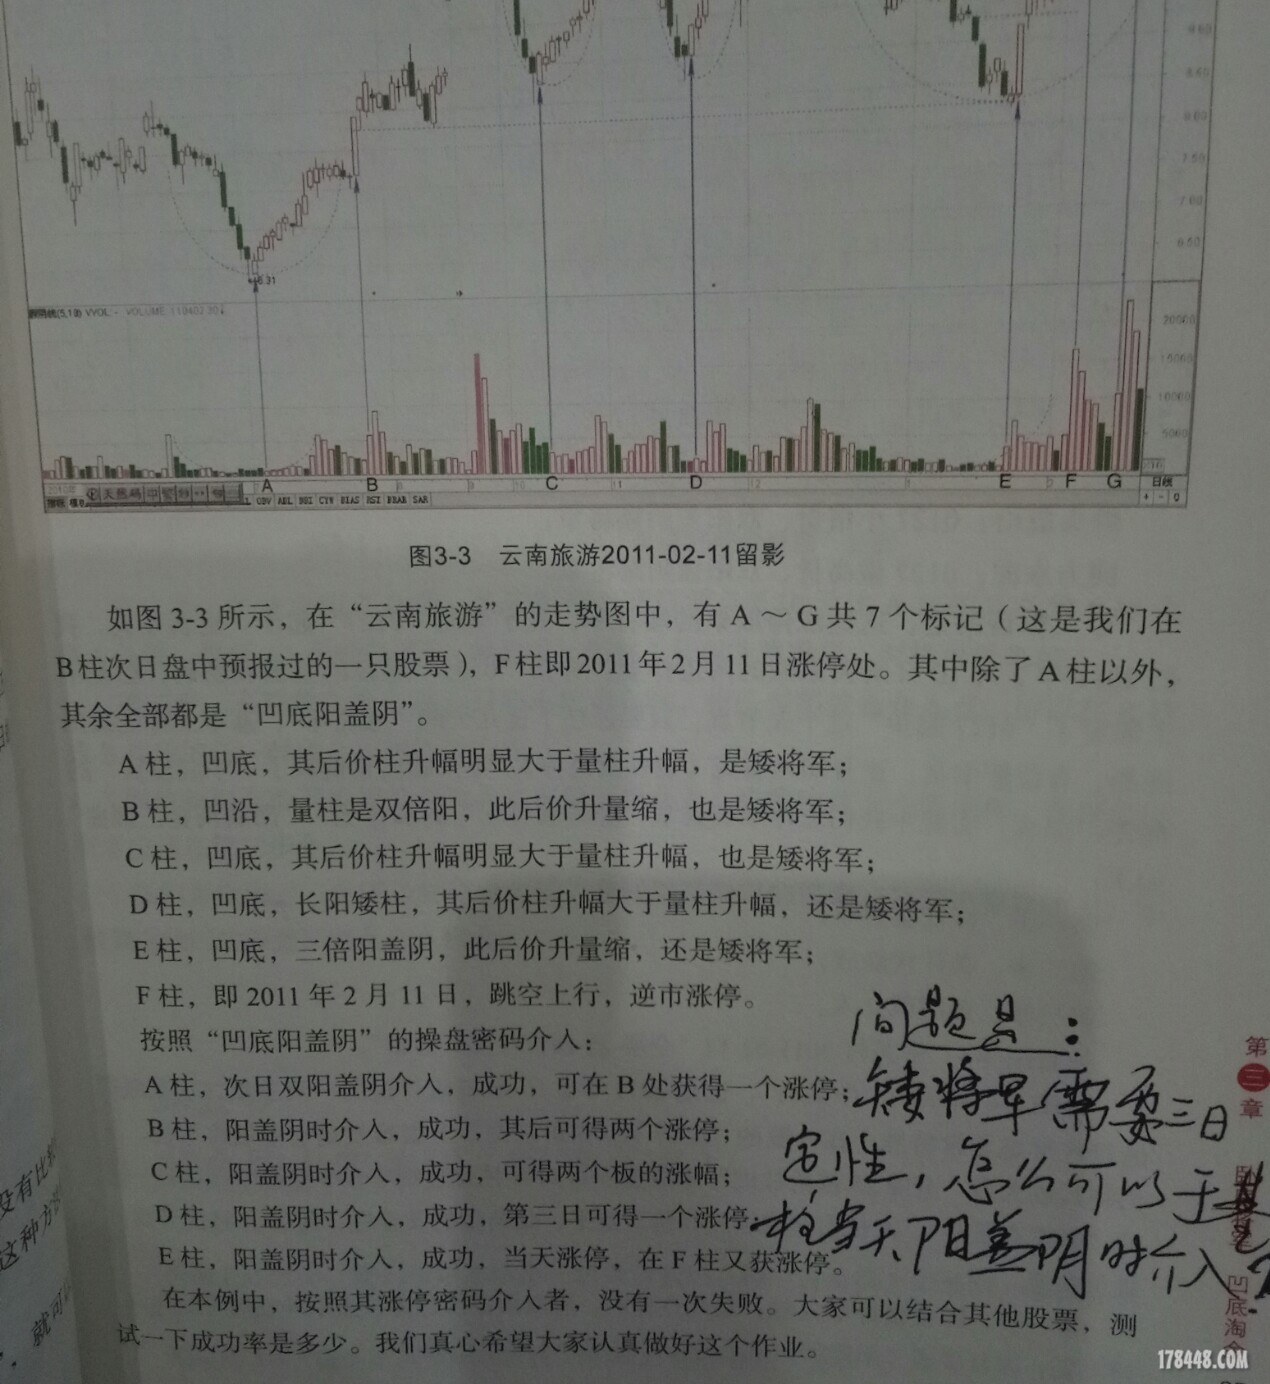 8.60
7.50
7.00
6.50
6.31
20000
15000
10000
5000
A B C D E F G 日线
OBV ADL BOZ CYW BIAS RSI BBAR SAR
图3-3 云南旅游2011-02-11留影
如图 3-3 所示，在“云南旅游”的走势图中，有 A～G 共 7 个标记（这是我们在
B柱次日盘中预报过的一只股票），F柱即 2011 年 2 月 11 日涨停处。其中除了 A 柱以外，
其余全部都是“凹底阳盖阴”。
A 柱，凹底，其后价柱升幅明显大于量柱升幅，是矮将军；
B 柱，凹沿，量柱是双倍阳，此后价升量缩，也是矮将军；
C 柱，凹底，其后价柱升幅明显大于量柱升幅，也是矮将军；
D 柱，凹底，长阳矮柱，其后价柱升幅大于量柱升幅，还是矮将军；
E 柱，凹底，三倍阳盖阴，此后价升量缩，还是矮将军；
F 柱，即 2011 年 2 月 11 日，跳空上行，逆市涨停。
按照“凹底阳盖阴”的操盘密码介入：
A 柱，次日双阳盖阴介入，成功，可在 B 处获得一个涨停；
B 柱，阳盖阴时介入，成功，其后可得两个涨停；
C 柱，阳盖阴时介入，成功，可得两个板的涨幅；
D 柱，阳盖阴时介入，成功，第三日可得一个涨停；
E 柱，阳盖阴时介入，成功，当天涨停，在 F 柱又获涨停。
在本例中，按照其涨停密码介入者，没有一次失败。大家可以结合其他股票，测
试一下成功率是多少。我们真心希望大家认真做好这个作业。
问题是：
矮将军需要三日
定性，怎么可以于其
柱当天阳盖阴时介入？
第三章
凹底淘金
没有比
这种方
就可
178448.COM